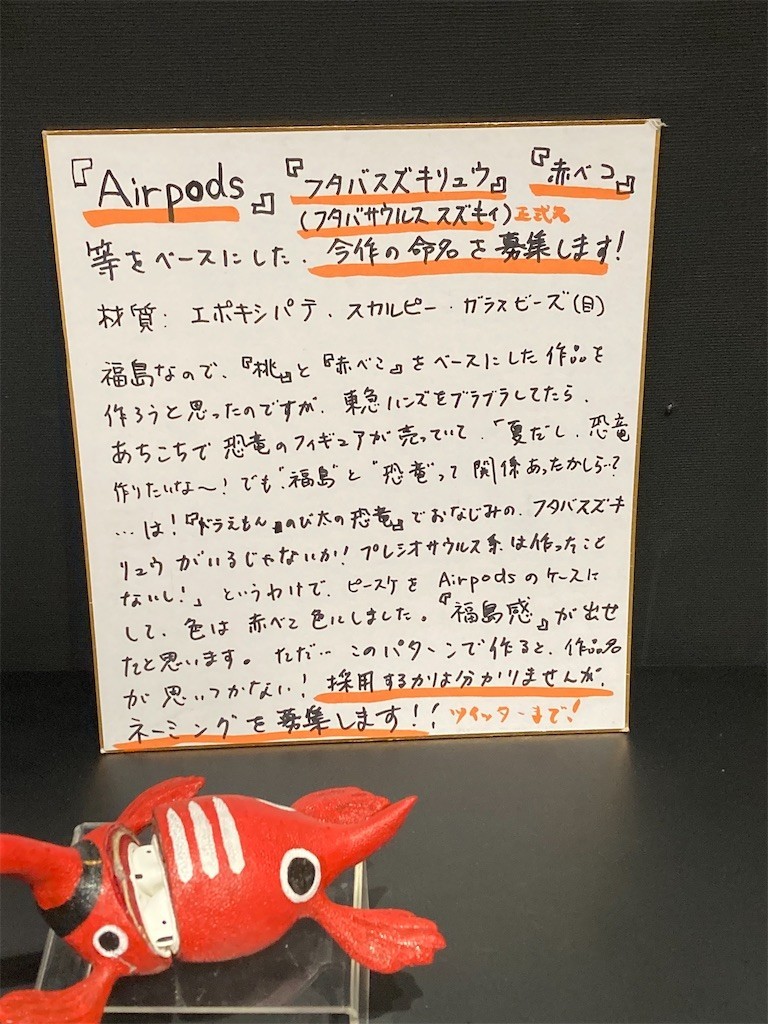 『Airpods』『フタバスズキリュウ』『赤べコ』
(フタバサウルス スズキイ)正式名
等をベースにした、今作の命名を募集します!
材質: エポキシパテ・スカルピー・ガラスビーズ(目)
福島なので、『桃』と『赤べこ』をベースにした作品を
作ろうと思ったのですが、東急ハンズをブラブラしてたら、
あちこちで恐竜のフィギュアが売っていて、「夏だし、恐竜
作りたいな〜!でも"福島"と"恐竜"って関係あったかしら…?
…は!『ドラえもん』のび太の恐竜』でおなじみの、フタバスズキ
リュウがいるじゃないか!プレシオサウルス系は作ったこと
ないし!」というわけで、ピースケをAirpodsのケースに
して、色は赤べこ色にしました。『福島感』が出せ
たと思います。ただ…このパターンで作ると、作品名
が思いつかない!採用するかは分かりませんが、
ネーミングを募集します!!ツイッターまで!